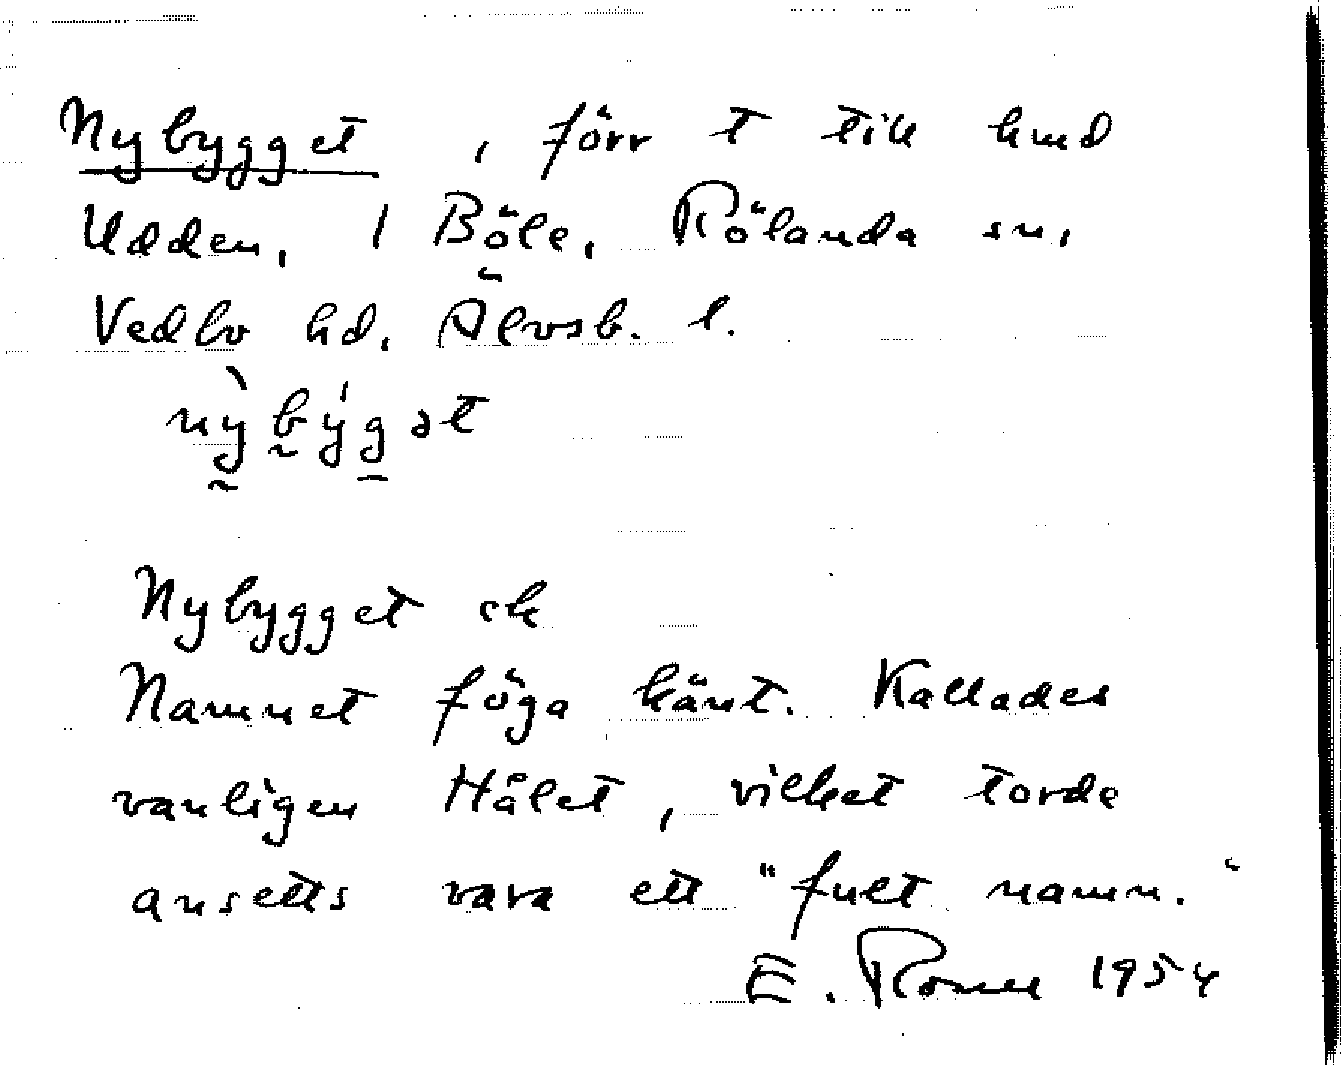 Nybygget, förr t till hmd
Udden, 1 Böle, Rölanda sn,
Vedbo hd, Älvsb. l.
nỳbýgət
Nybygget ek
Namnet föga känt. Kallades
vanligen Hålet, vilket torde
ansetts vara ett "fult namn."
E. 1954